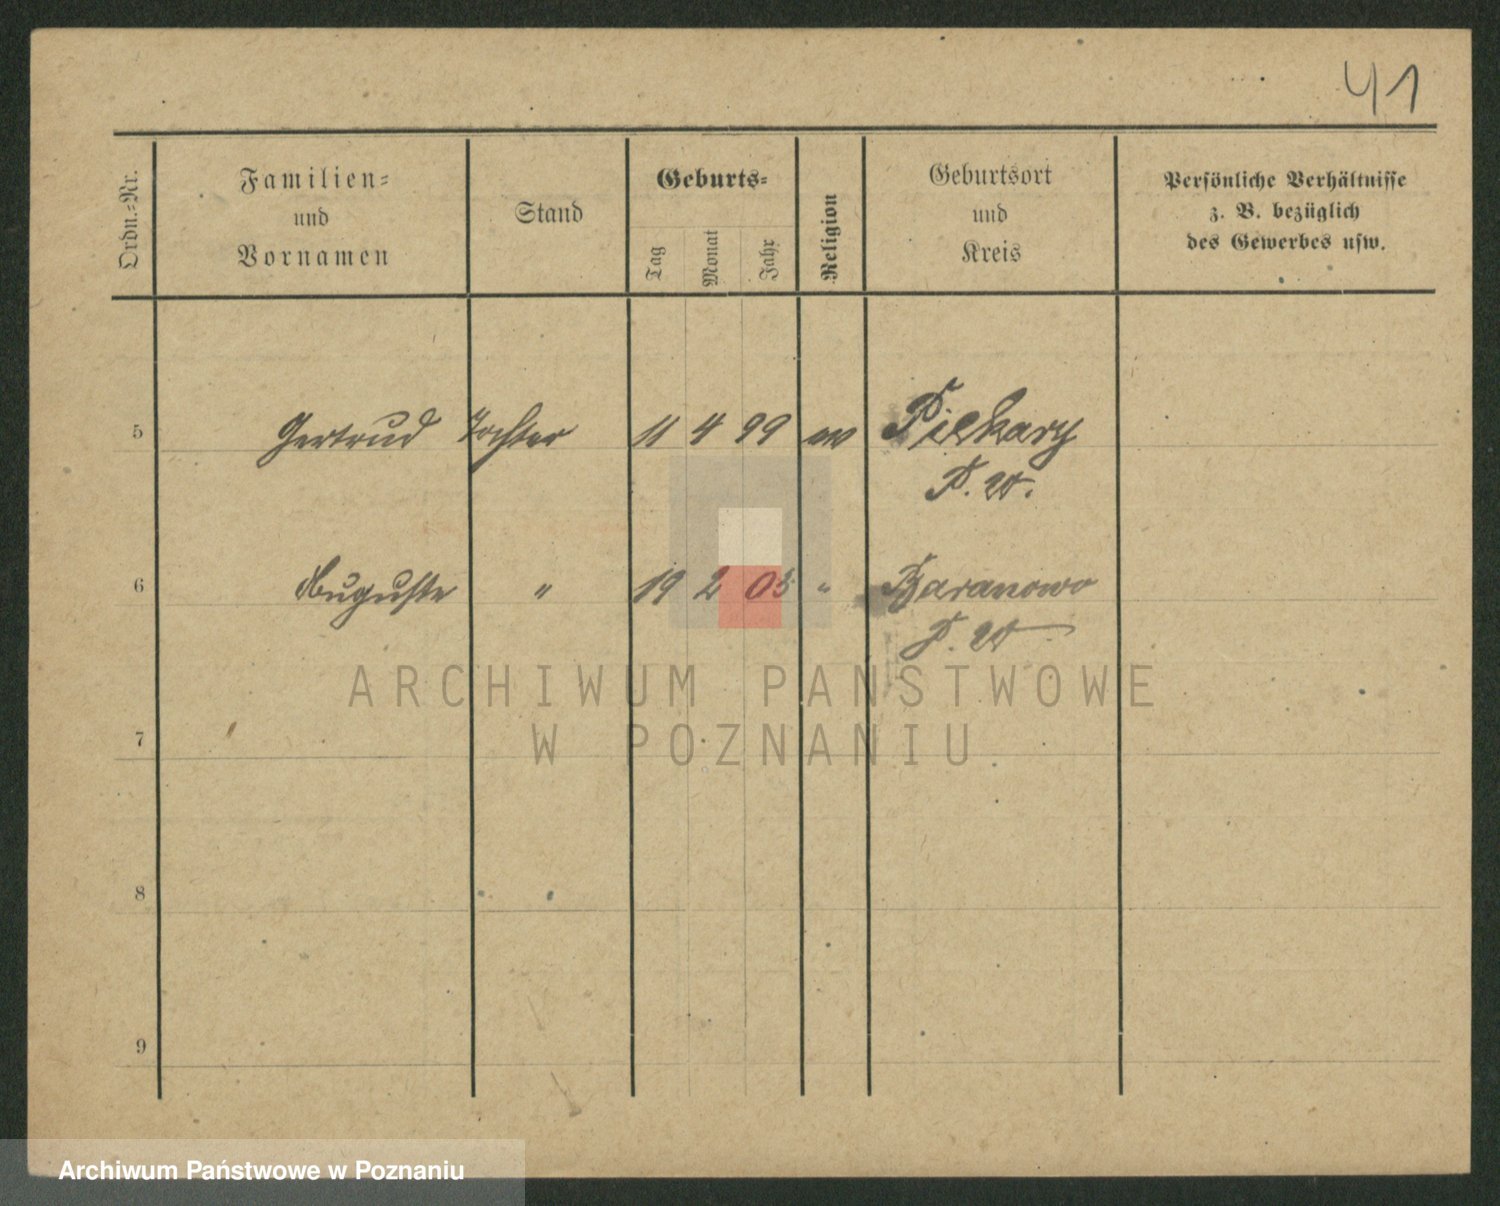 41
Ordn.-Nr.
Familien-
und
Vornamen
Stand
Geburts-
Tag
Monat
Jahr
Religion
Geburtsort
und
Kreis
Persönliche Verhältnisse
z. B. bezüglich
des Gewerbes usw.
5 Gertrud Tochter 11 4 99 ev Piekary
P. W.
6 Auguste " 19 2 03 " Baranowo
P. W
7
8
9
ARCHIWUM PAŃSTWOWE
W POZNANIU
Archiwum Państwowe w Poznaniu